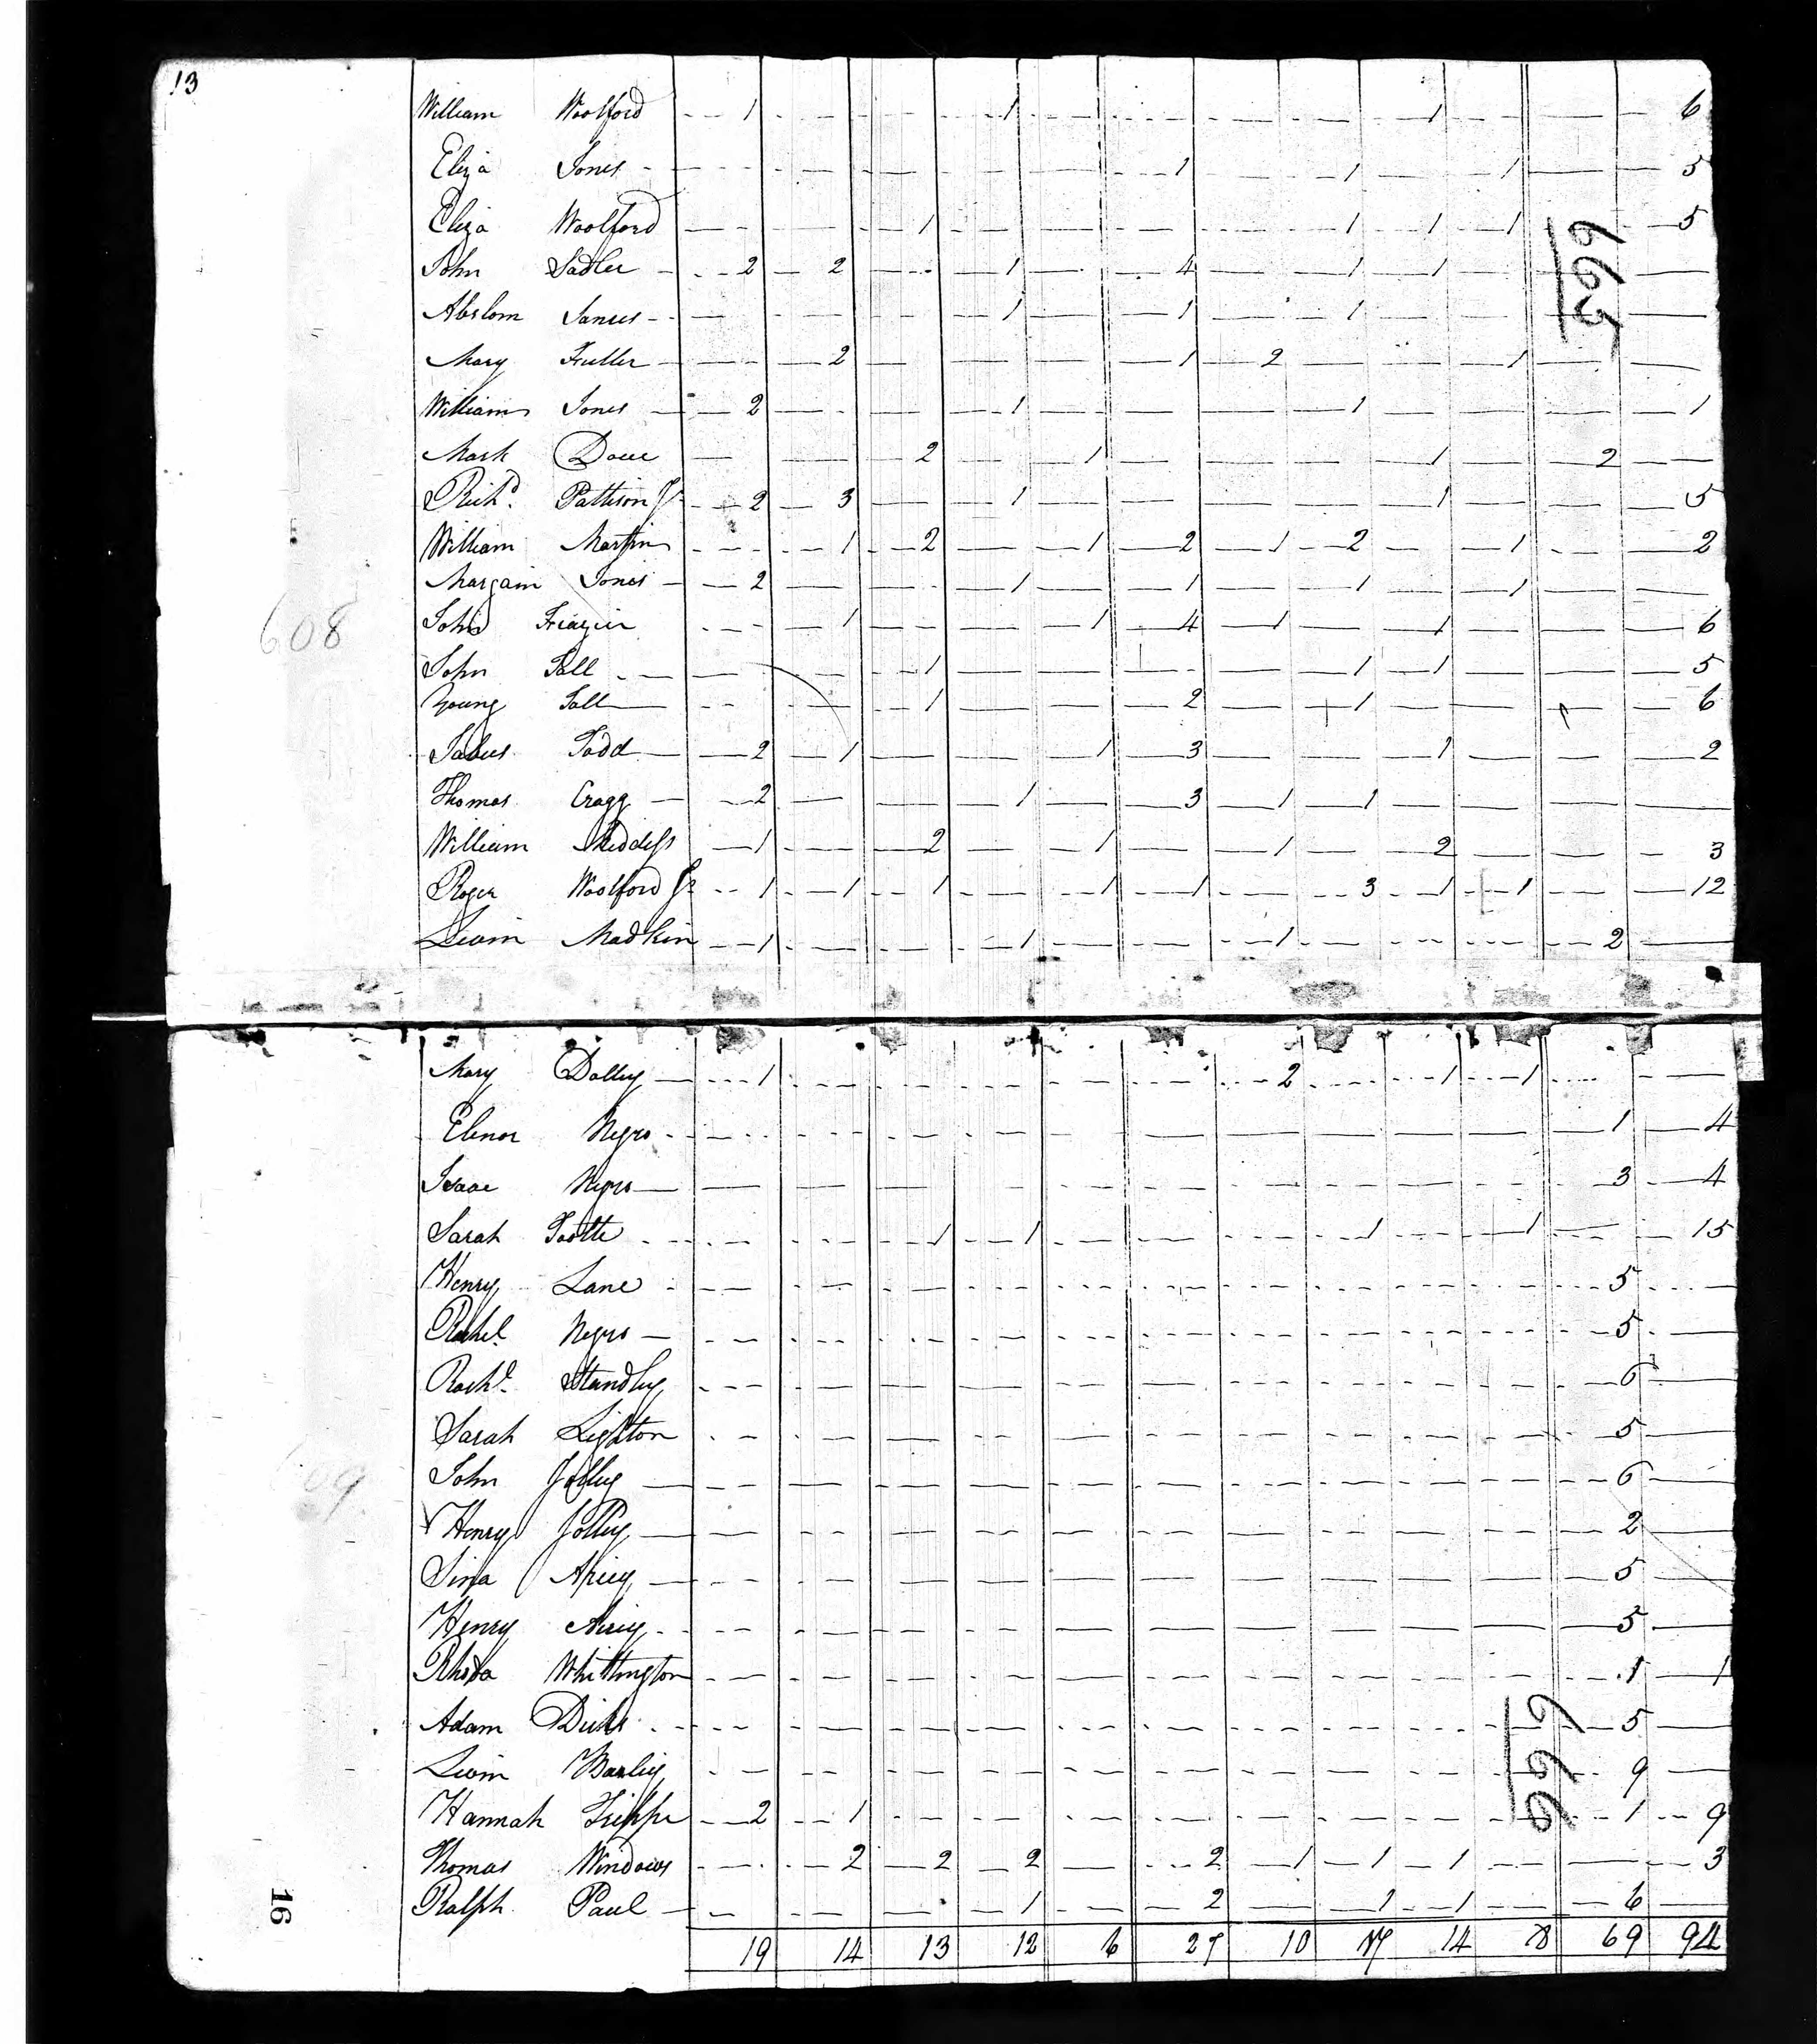 13
William Woolford 1 1 1 6
Eliza Jones 1 1 1 5
Eliza Woolford 1 1 1 1 5
665
John Sadler 2 2 1 4 1 1
Abslom James 1 1 1
Mary Fuller 2 1 2 1
William Jones 2 1 1 1
Mark 2 1 1 2
Richd. Pattison Jr 2 3 1 1 5
William Martin 1 2 1 2 1 2 1 2
Jones 2 1 1 1 1
608
John Frazier 1 1 4 1 1 6
John Tall 1 1 1 5
Young Tall 1 2 1 6
Todd 2 1 1 3 1 2
Thomas Cragg 2 1 3 1 1
William 1 2 1 1 2 3
Roger Woolford Jr 1 1 1 1 1 3 1 1 12
Levin Madkin 1 1 1 2
Mary Dolley 1 2 1 1
Elenor Negro 1 4
Isaac Negro 3 4
Sarah Tootte 1 1 1 1 15
Henry Lane 5
Rachel Negro 5
Rachl. Standley 6
Sarah Lighton 5
609
John Jolley 6
Henry Jolley 2
5
Henry 5
Rhoda Whittington 1 1
Adam Dicks 5
666
Levin 9
Hannah Trippe 2 1 1 9
Thomas Windows 2 2 2 2 1 1 1 3
16
Ralph Paul 1 2 1 1 6
19 14 13 12 6 27 10 17 14 8 69 94